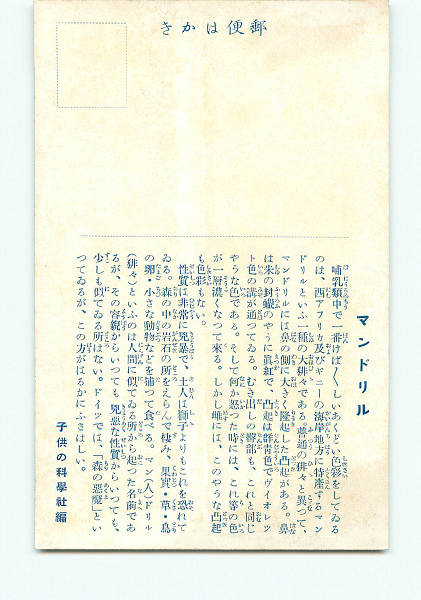 郵便はかき
マンドリル
哺乳類中で一番けば〱しいあくどい色彩をしてゐる
のは、西アフリカ及びギニーの海岸地方に特產するマン
ドリルといふ一種の大狒々である。普通の狒々と異つて、
マンドリルには鼻の側に大きく隆起した凸起がある。鼻
は朱の封蠟のやうに眞紅で、凸起は群靑色でヴイオレッ
ト色の溝が通つてゐる。むき出しの臀部も、これと同じ
やうな色である。そして何か怒つた時には、これ等の色
が一層濃くなつて來る。しかし雌には、このやうな凸起
も色彩もない。
性質は非常に兇暴で、土人は獅子よりもこれを恐れて
ゐる。森の中の岩石の所をえらんで棲み、果實・草・鳥
の卵・小さな動物などを捕つて食べる。マン(人)ドリル
(狒々)といふのは人間に似てゐる所から起つた名前であ
るが、その容貌からいつても、兇惡な性質からいつても、
少しも似てゐる所はない。ドイツでは、「森の惡魔」とい
つてゐるが、この方がはるかにふさはしい。
子供の科學社編